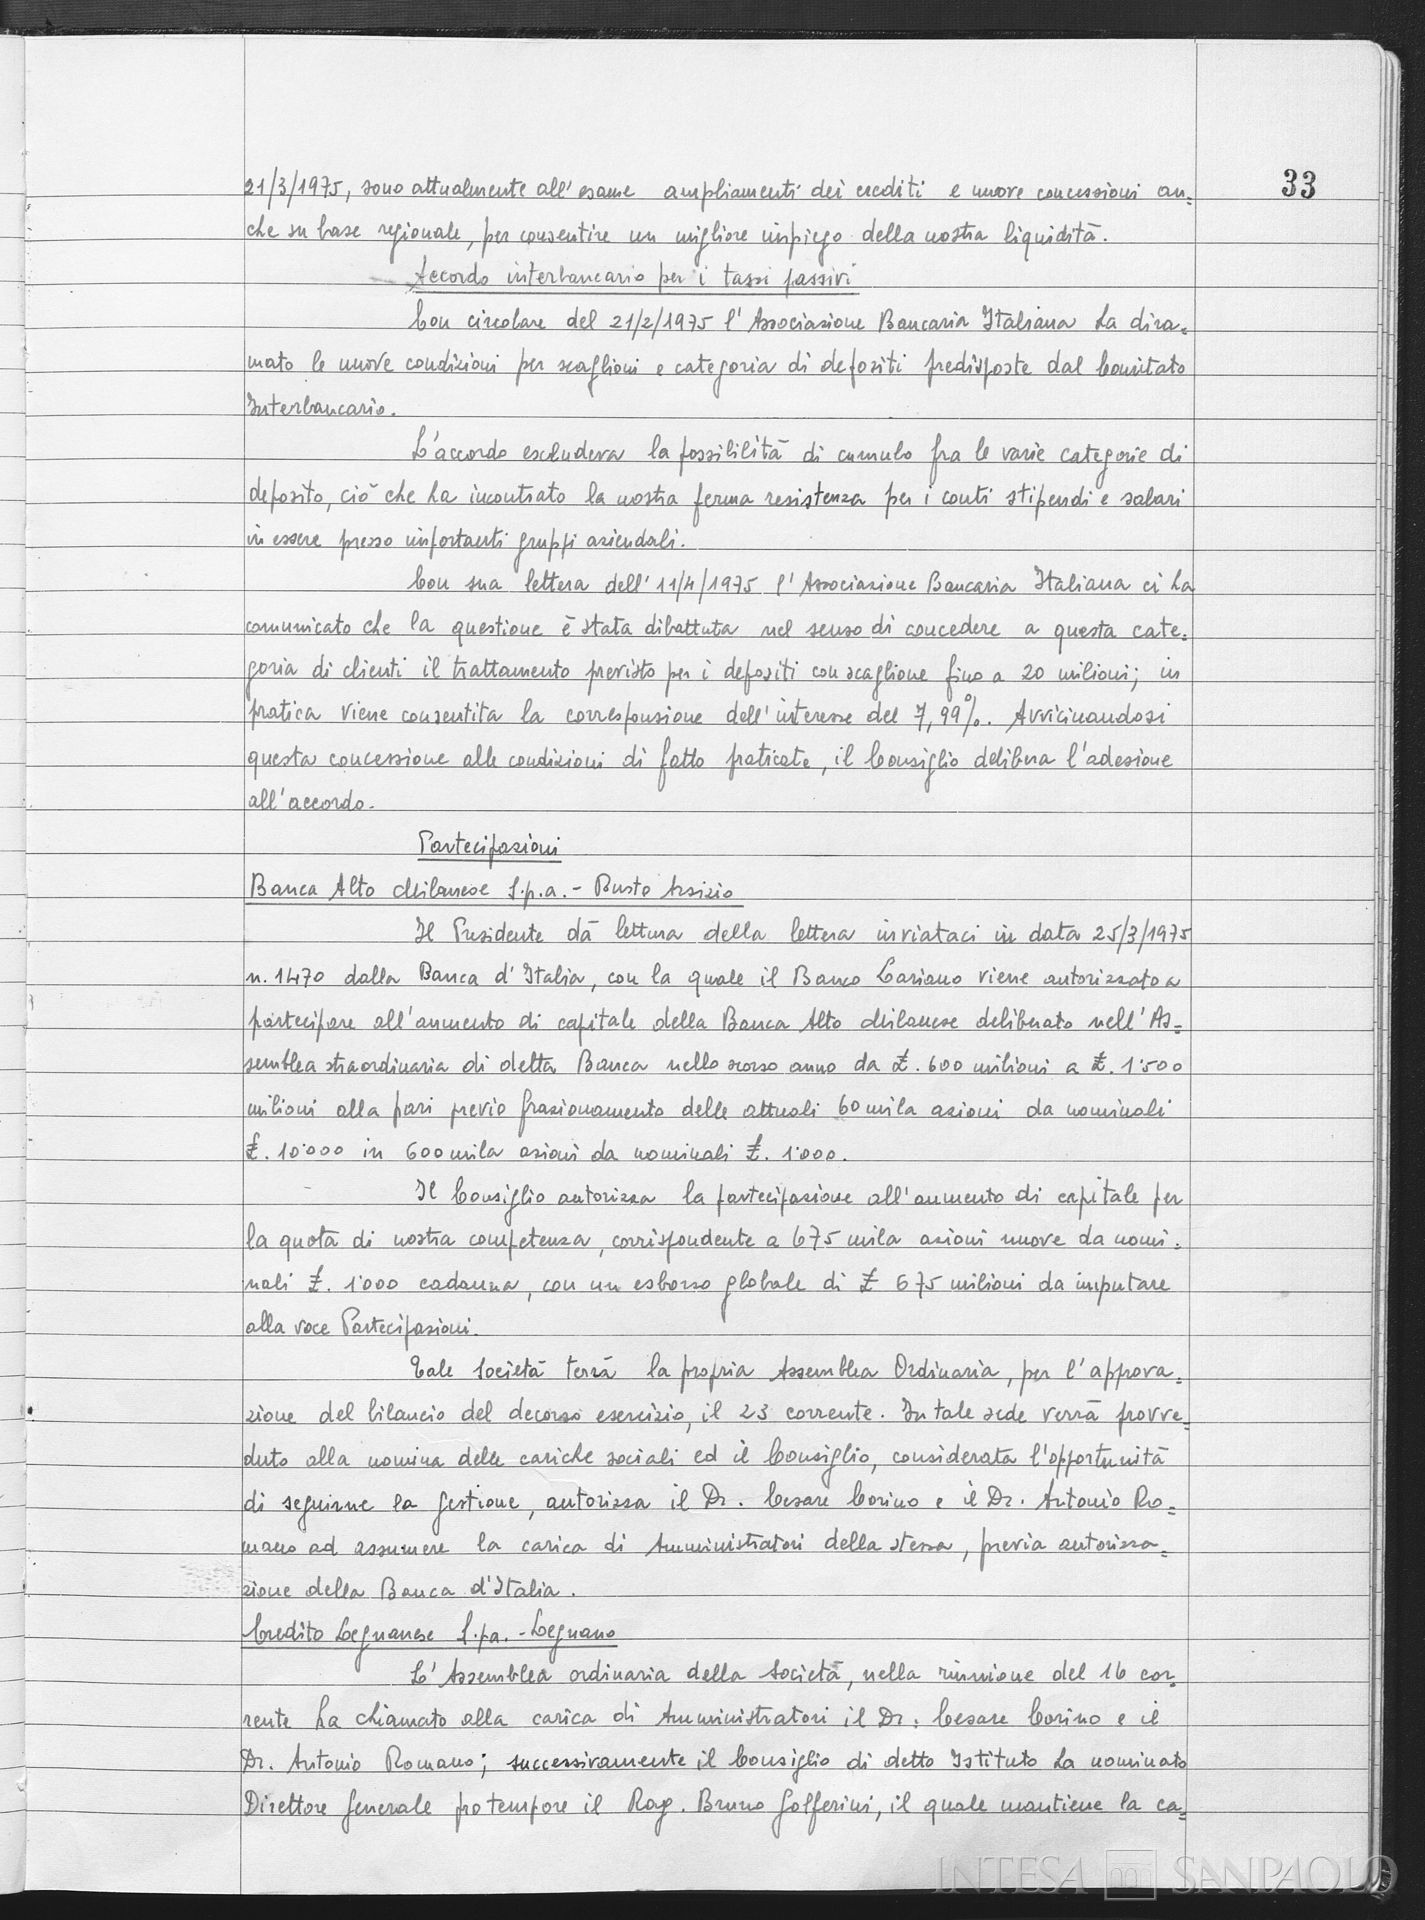 33
21/3/1975, sono attualmente all'esame ampliamenti dei crediti e nuove concessioni an=
che su base regionale, per consentire un migliore impiego della nostra liquidità.
Accordo interbancario per i tassi passivi
Con circolare del 21/2/1975 l'Associazione Bancaria Italiana ha dira=
mato le nuove condizioni per scaglioni e categoria di depositi predisposte dal Comitato
Interbancario.
L'accordo escludeva la possibilità di cumulo fra le varie categorie di
deposito, ciò che ha incontrato la nostra ferma resistenza per i conti stipendi e salari
in essere presso importanti gruppi aziendali.
Con sua lettera dell'11/4/1975 l'Associazione Bancaria Italiana ci ha
comunicato che la questione è stata dibattuta nel senso di concedere a questa cate=
goria di clienti il trattamento previsto per i depositi con scaglione fino a 20 milioni; in
pratica viene consentita la corresponsione dell'interesse del 7,99%. Avvicinandosi
questa concessione alle condizioni di fatto praticate, il Consiglio delibera l'adesione
all'accordo.
Partecipazioni
Banca Alto Milanese S.p.a. - Busto Arsizio
Il Presidente dà lettura della lettera inviataci in data 25/3/1975
n. 1470 dalla Banca d'Italia, con la quale il Banco Lariano viene autorizzato a
partecipare all'aumento di capitale della Banca Alto Milanese deliberato nell'As=
semblea straordinaria di detta Banca nello scorso anno da £. 600 milioni a £. 1'500
milioni alla pari previo frazionamento delle attuali 60 mila azioni da nominali
£. 10'000 in 600 mila azioni da nominali £. 1'000.
Il Consiglio autorizza la partecipazione all'aumento di capitale per
la quota di nostra competenza, corrispondente a 675 mila azioni nuove da nomi=
nali £. 1'000 cadauna, con un esborso globale di £ 675 milioni da imputare
alla voce Partecipazioni.
Tale Società terrà la propria Assemblea Ordinaria, per l'approva=
zione del bilancio del decorso esercizio, il 23 corrente. In tale sede verrà provve=
duto alla nomina delle cariche sociali ed il Consiglio, considerata l'opportunità
di seguirne la gestione, autorizza il Dr. Cesare Corino e il Dr. Antonio Ro=
mano ad assumere la carica di Amministratori della stessa, previa autorizza=
zione della Banca d'Italia.
Credito Legnanese S.p.a. - Legnano
L'Assemblea ordinaria della Società, nella riunione del 16 cor=
rente ha chiamato alla carica di Amministratori il Dr. Cesare Corino e il
Dr. Antonio Romano; successivamente il Consiglio di detto Istituto ha nominato
Direttore Generale pro tempore il Rag. Bruno Golferini, il quale mantiene la ca=
INTESA SANPAOLO